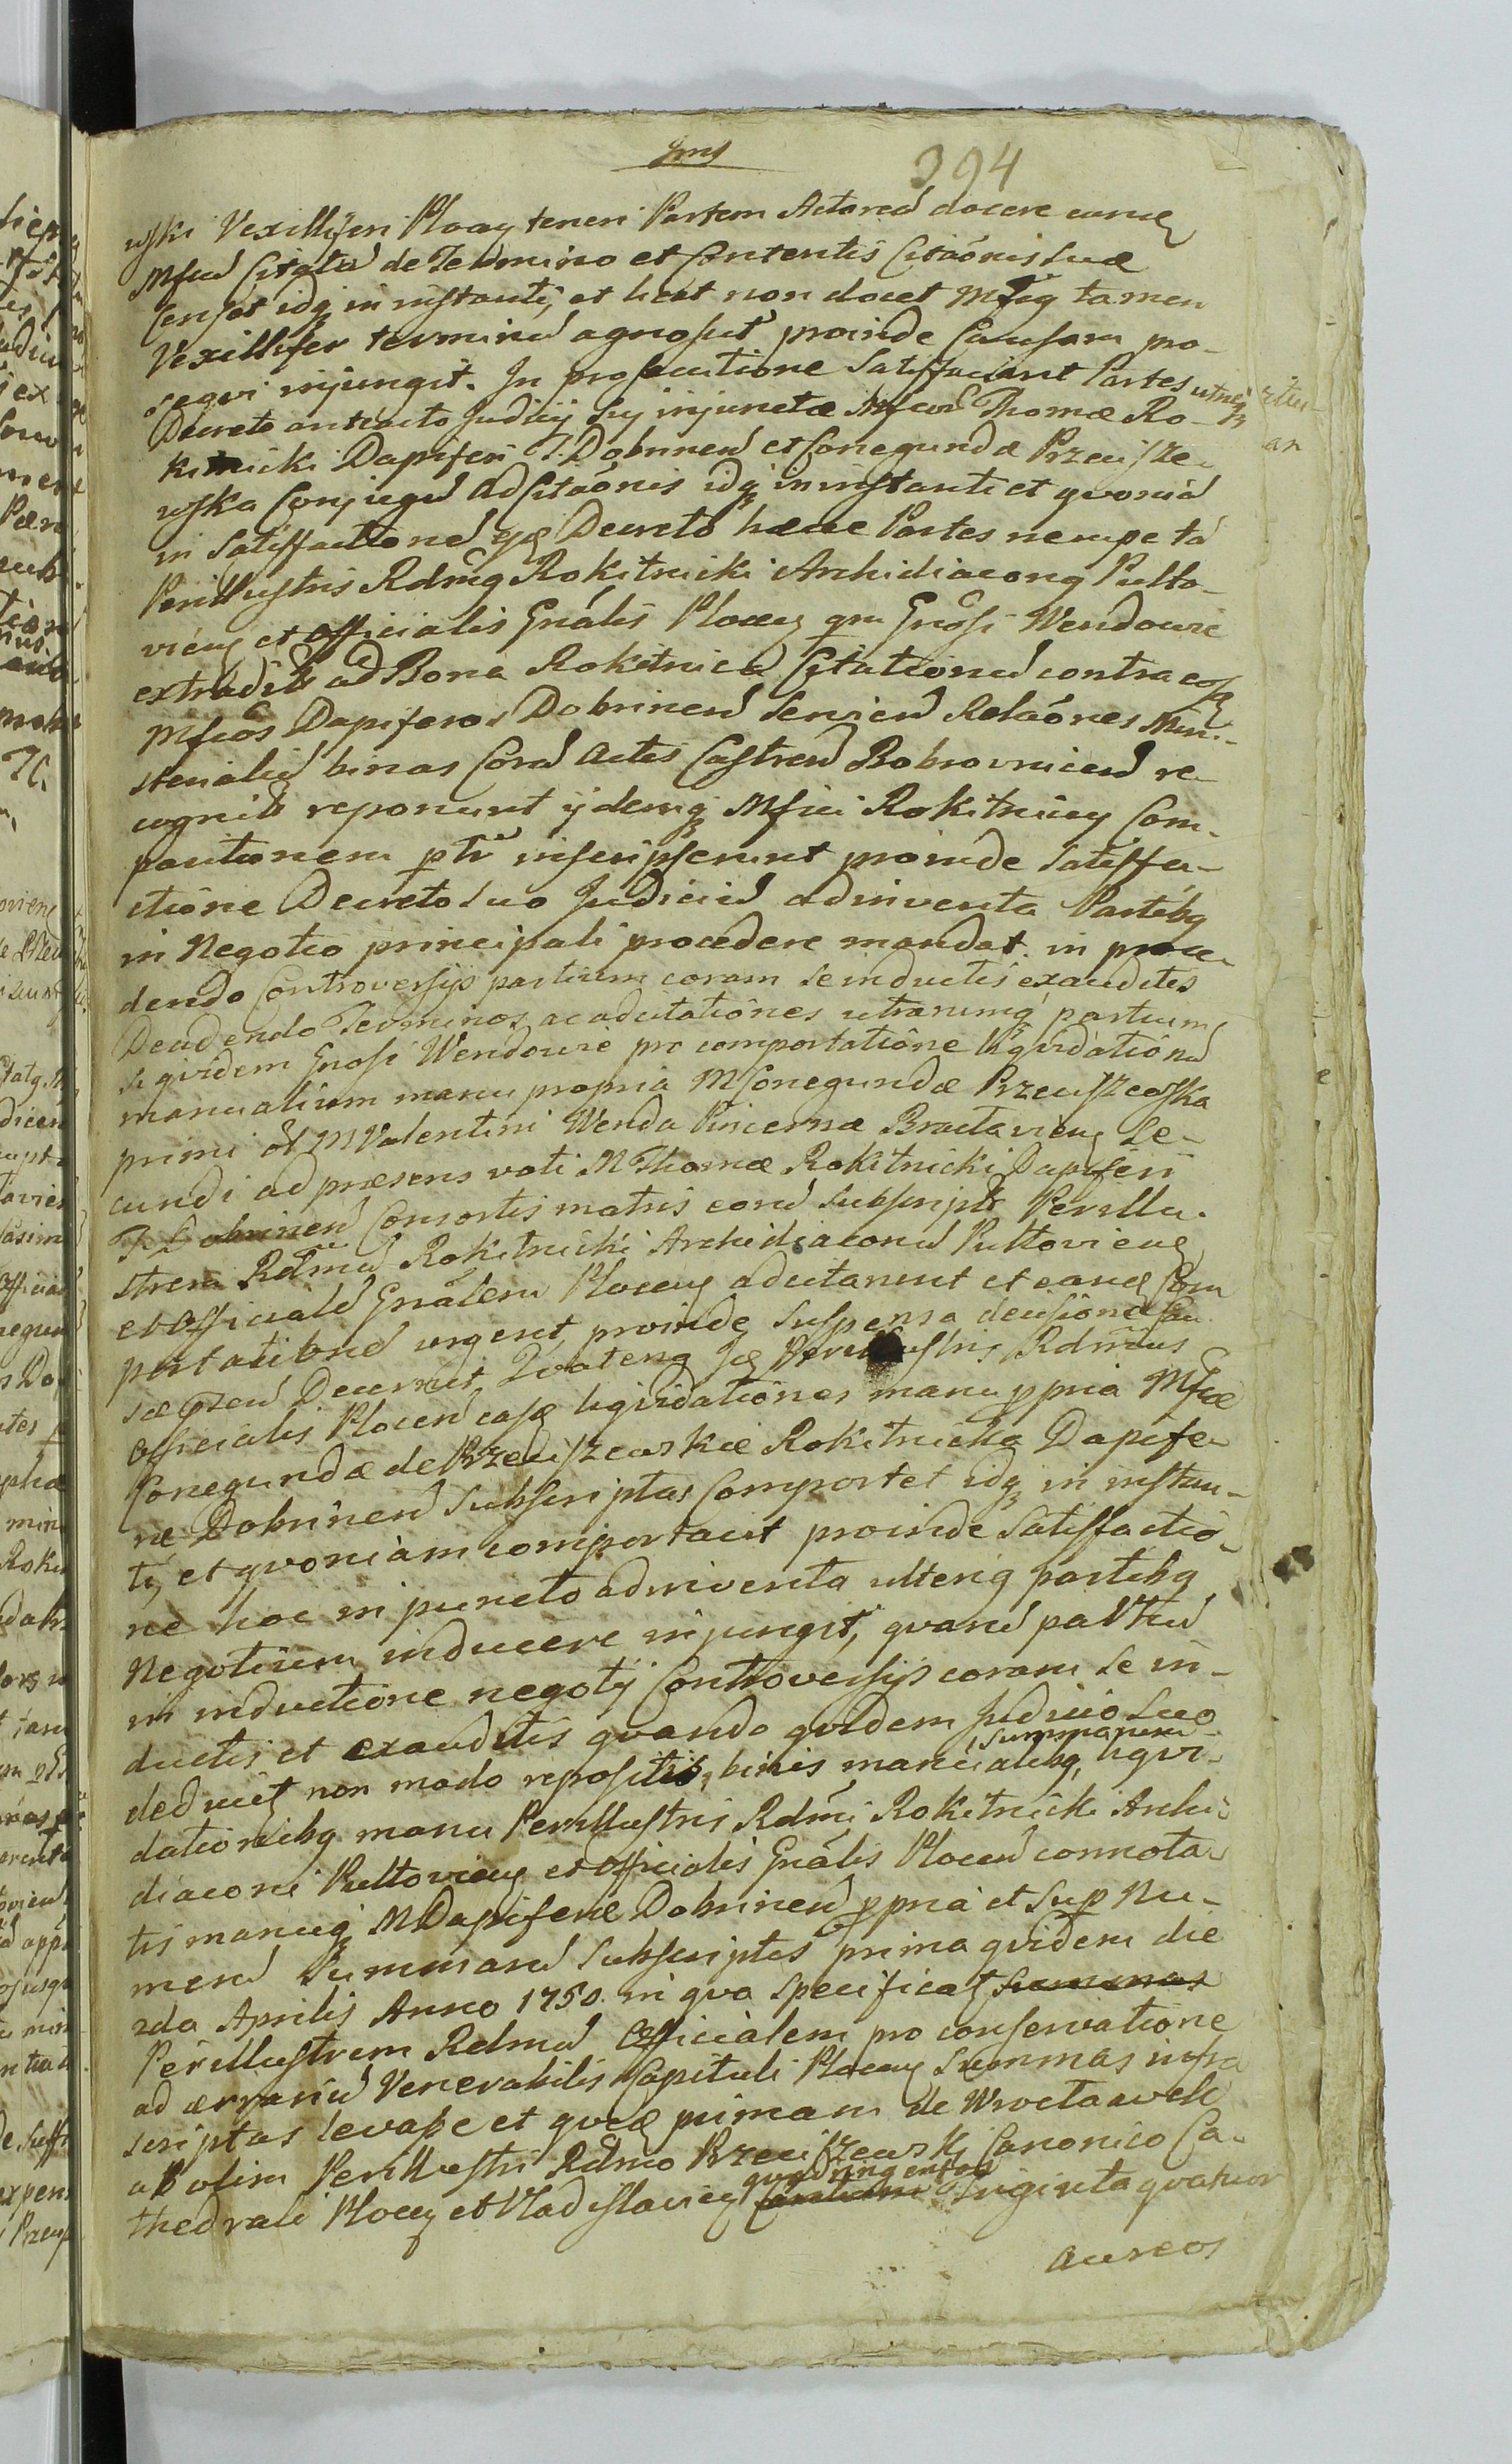 394
wski Vexilliferi Plocen teneri Partem Actoream docere eamq
Mfcum Citatum de Termino et Contentis Citaõnis suæ
censet idq in instanti, et licet non docet Mfcus tamen
Vexillifer terminum agnoscit proinde Causam pro-
sequi injungit. In prosecutione Satisfaciant Partes utræq
Decreto antracto Judicij sui injunctæ Mfcorum Thomæ Ro-
kitnicki Dapiferi T. Dobrinen et Conegundæ Przeciszew
wska Conjugum adcitaõnis idq in instanti et quoniam
in Satisfactionem ejus Decreto hæce Partes nempe tam
Perillustris Rdmus Rokitnicki Archidiaconus Pulto-
vien et Officialis Gnãlis Plocen qm Gnosi Wendowie
extraditas ad Bona Rokitnica Citationum contra eosd
Mfcos Dapiferos Dobrinen Servien Relaõnes Mini-
sterialium binas Coram Actis Castren Bobrovnicen re-
cognitas reponunt ijdemq Mfci Rokitnicy Com-
paritionem ptr inscripserunt proinde Satisfa-
ctione Decreto suo Judicium adinventa Partibq
in Negotio principali procedere mandat. in proce
dendo Controversijs partium coram se inductis exauditis
Decidendo Terminos ac adcitationes utrarumq partium
siquidem Gnosi Wendowie pro comportatione liquidationum
manualium manu propria M Conegundæ Przeciszewska
primi olim M Valentini Wenda Pincernæ Braclavien Se-
cundi ad præsens voti M Thomæ Rokitnicki Dapiferi
T. Dobrinen Consortis matris eorum subscriptas Perillu-
strem Rdmum Rokitnicki Archidiaconum Pultovien
et Officialem Gnãlem Plocen adcitarunt et eamq Com
portationem urgent, proinde suspensa decisione Cau
sæ pnen Decernit Quatenq Jdq Perillustris Rdmus
Officialis Plocen easq liquidationes manu ppria Mfcæ
Conegundæ de Przeciszewskie Rokitnicka Dapife
ræ Dobrinen Subscriptas Comportet idq in instan-
ti, et quoniam comportavit proinde Satisfactio-
ne hoc in puncto adinventa ulteriq partibq
Negotium inducere injungit, quarum partium
in inductione negotij Controversijs coram se in-
ductis et exauditis quando quidem Judicio suo
deducit non modo repositis, binis manualibq, summarum liqui-
dationibq manu Perillustris Rdmi Rokitnicki Archi
diaconi Pultovien et Officialis Gnãlis Plocen connota
tis manuq M Dapiferæ Dobrinen ppria et sup Nu-
merum Summarum subscriptis prima quidem die
2da Aprilis Anno 1750. in qua specificat Summas
Perillustrem Rdmum Officialem pro conservatione
ad ærarium Venerabilis Capituli Plocen Summas infra
scriptas levasse et quidem primam de Wroctawek
ab olim Perillustri Rdmo Przeciszewski Canonico Ca
thedrali Plocen et Vladislavien quadringentos triginta quatuor
aureos